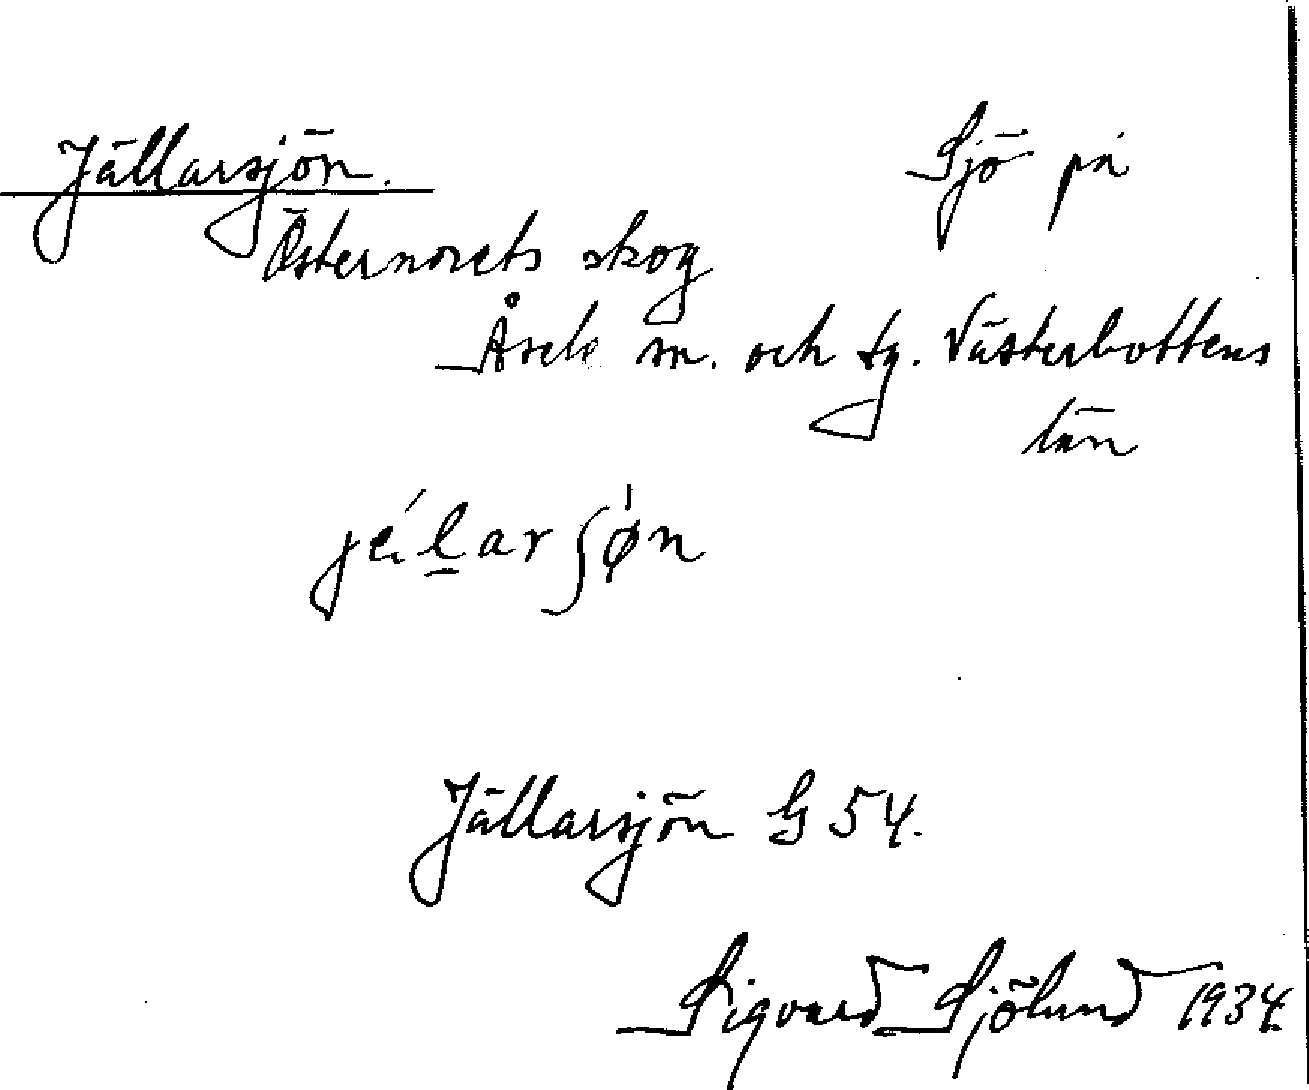 Jällarsjön. Sjö på
Östernorets skog
Åsele sn. och tg. Västerbottens
län
jä́l̲arʃø̍n
Jällarsjön G 54.
Sigvard Sjölund 1934